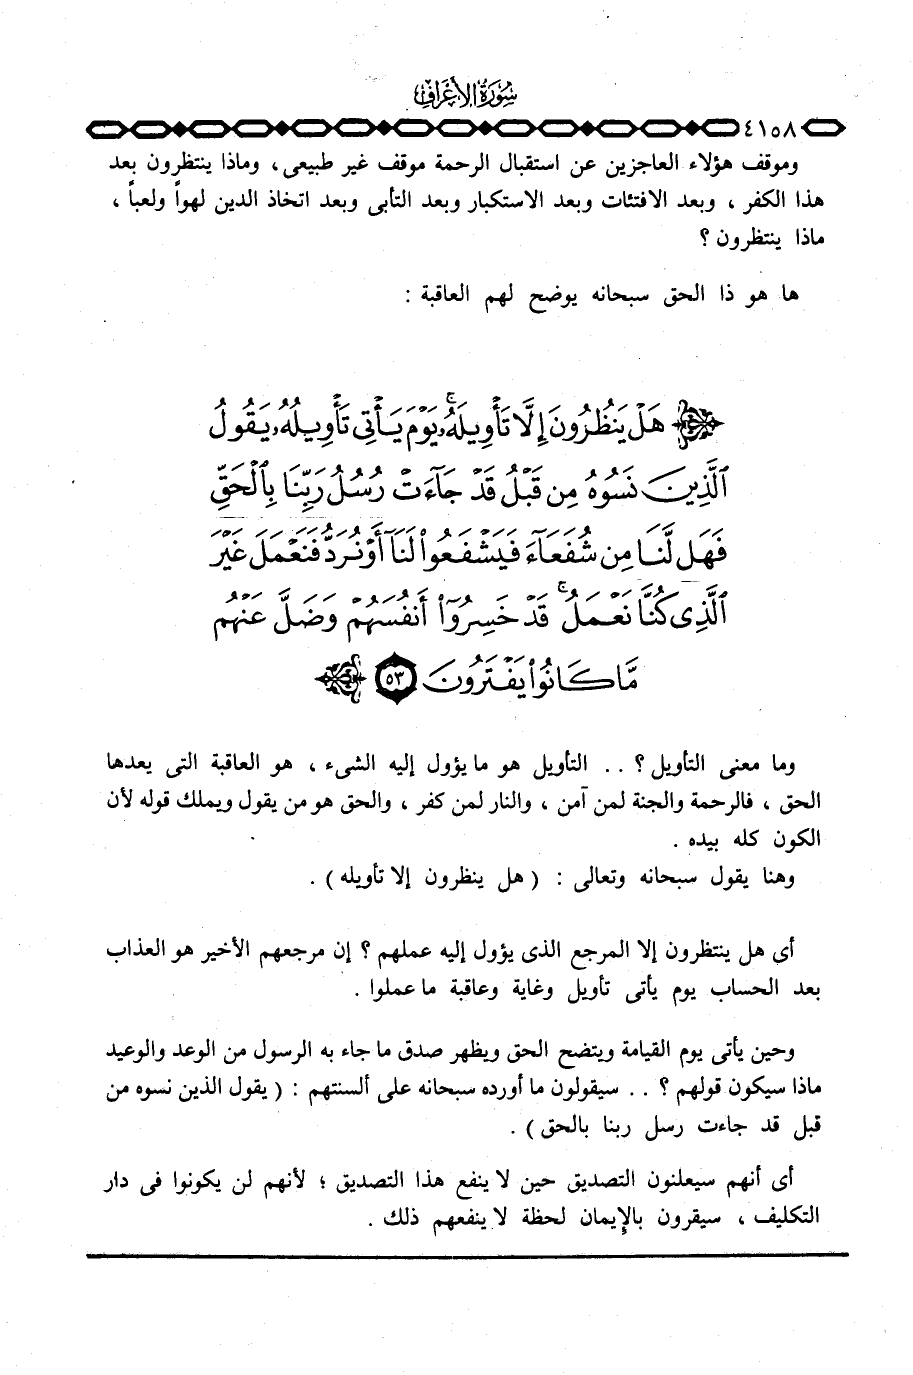 سُورَةُ الأَعْرَافِ
٤١٥٨
وموقف هؤلاء العاجزين عن استقبال الرحمة موقف غير طبيعى، وماذا ينتظرون بعد
هذا الكفر ، وبعد الافتئات وبعد الاستكبار وبعد التأبى وبعد اتخاذ الدين لهواً ولعباً ،
ماذا ينتظرون ؟
ها هو ذا الحق سبحانه يوضح لهم العاقبة :
هَلْ يَنظُرُونَ إِلَّا تَأْوِيلَهُۥۚ يَوْمَ يَأْتِى تَأْوِيلُهُۥ يَقُولُ
ٱلَّذِينَ نَسُوهُ مِن قَبْلُ قَدْ جَآءَتْ رُسُلُ رَبِّنَا بِٱلْحَقِّ
فَهَل لَّنَا مِن شُفَعَآءَ فَيَشْفَعُوا۟ لَنَآ أَوْ نُرَدُّ فَنَعْمَلَ غَيْرَ
ٱلَّذِى كُنَّا نَعْمَلُۚ قَدْ خَسِرُوٓا۟ أَنفُسَهُمْ وَضَلَّ عَنْهُم
مَّا كَانُوا۟ يَفْتَرُونَ ٥٣
وما معنى التأويل ؟ . . التأويل هو ما يؤول إليه الشىء ، هو العاقبة التى يعدها
الحق ، فالرحمة والجنة لمن آمن ، والنار لمن كفر ، والحق هو من يقول ويملك قوله لأن
الكون كله بيده .
وهنا يقول سبحانه وتعالى : ( هل ينظرون إلا تأويله ) .
أى هل ينتظرون إلا المرجع الذى يؤول إليه عملهم ؟ إن مرجعهم الأخير هو العذاب
بعد الحساب يوم يأتى تأويل وغاية وعاقبة ما عملوا .
وحين يأتى يوم القيامة ويتضح الحق ويظهر صدق ما جاء به الرسول من الوعد والوعيد
ماذا سيكون قولهم ؟ . . سيقولون ما أورده سبحانه على ألسنتهم : ( يقول الذين نسوه من
قبل قد جاءت رسل ربنا بالحق ) .
أى أنهم سيعلنون التصديق حين لا ينفع هذا التصديق ؛ لأنهم لن يكونوا فى دار
التكليف ، سيقرون بالإيمان لحظة لا ينفعهم ذلك .